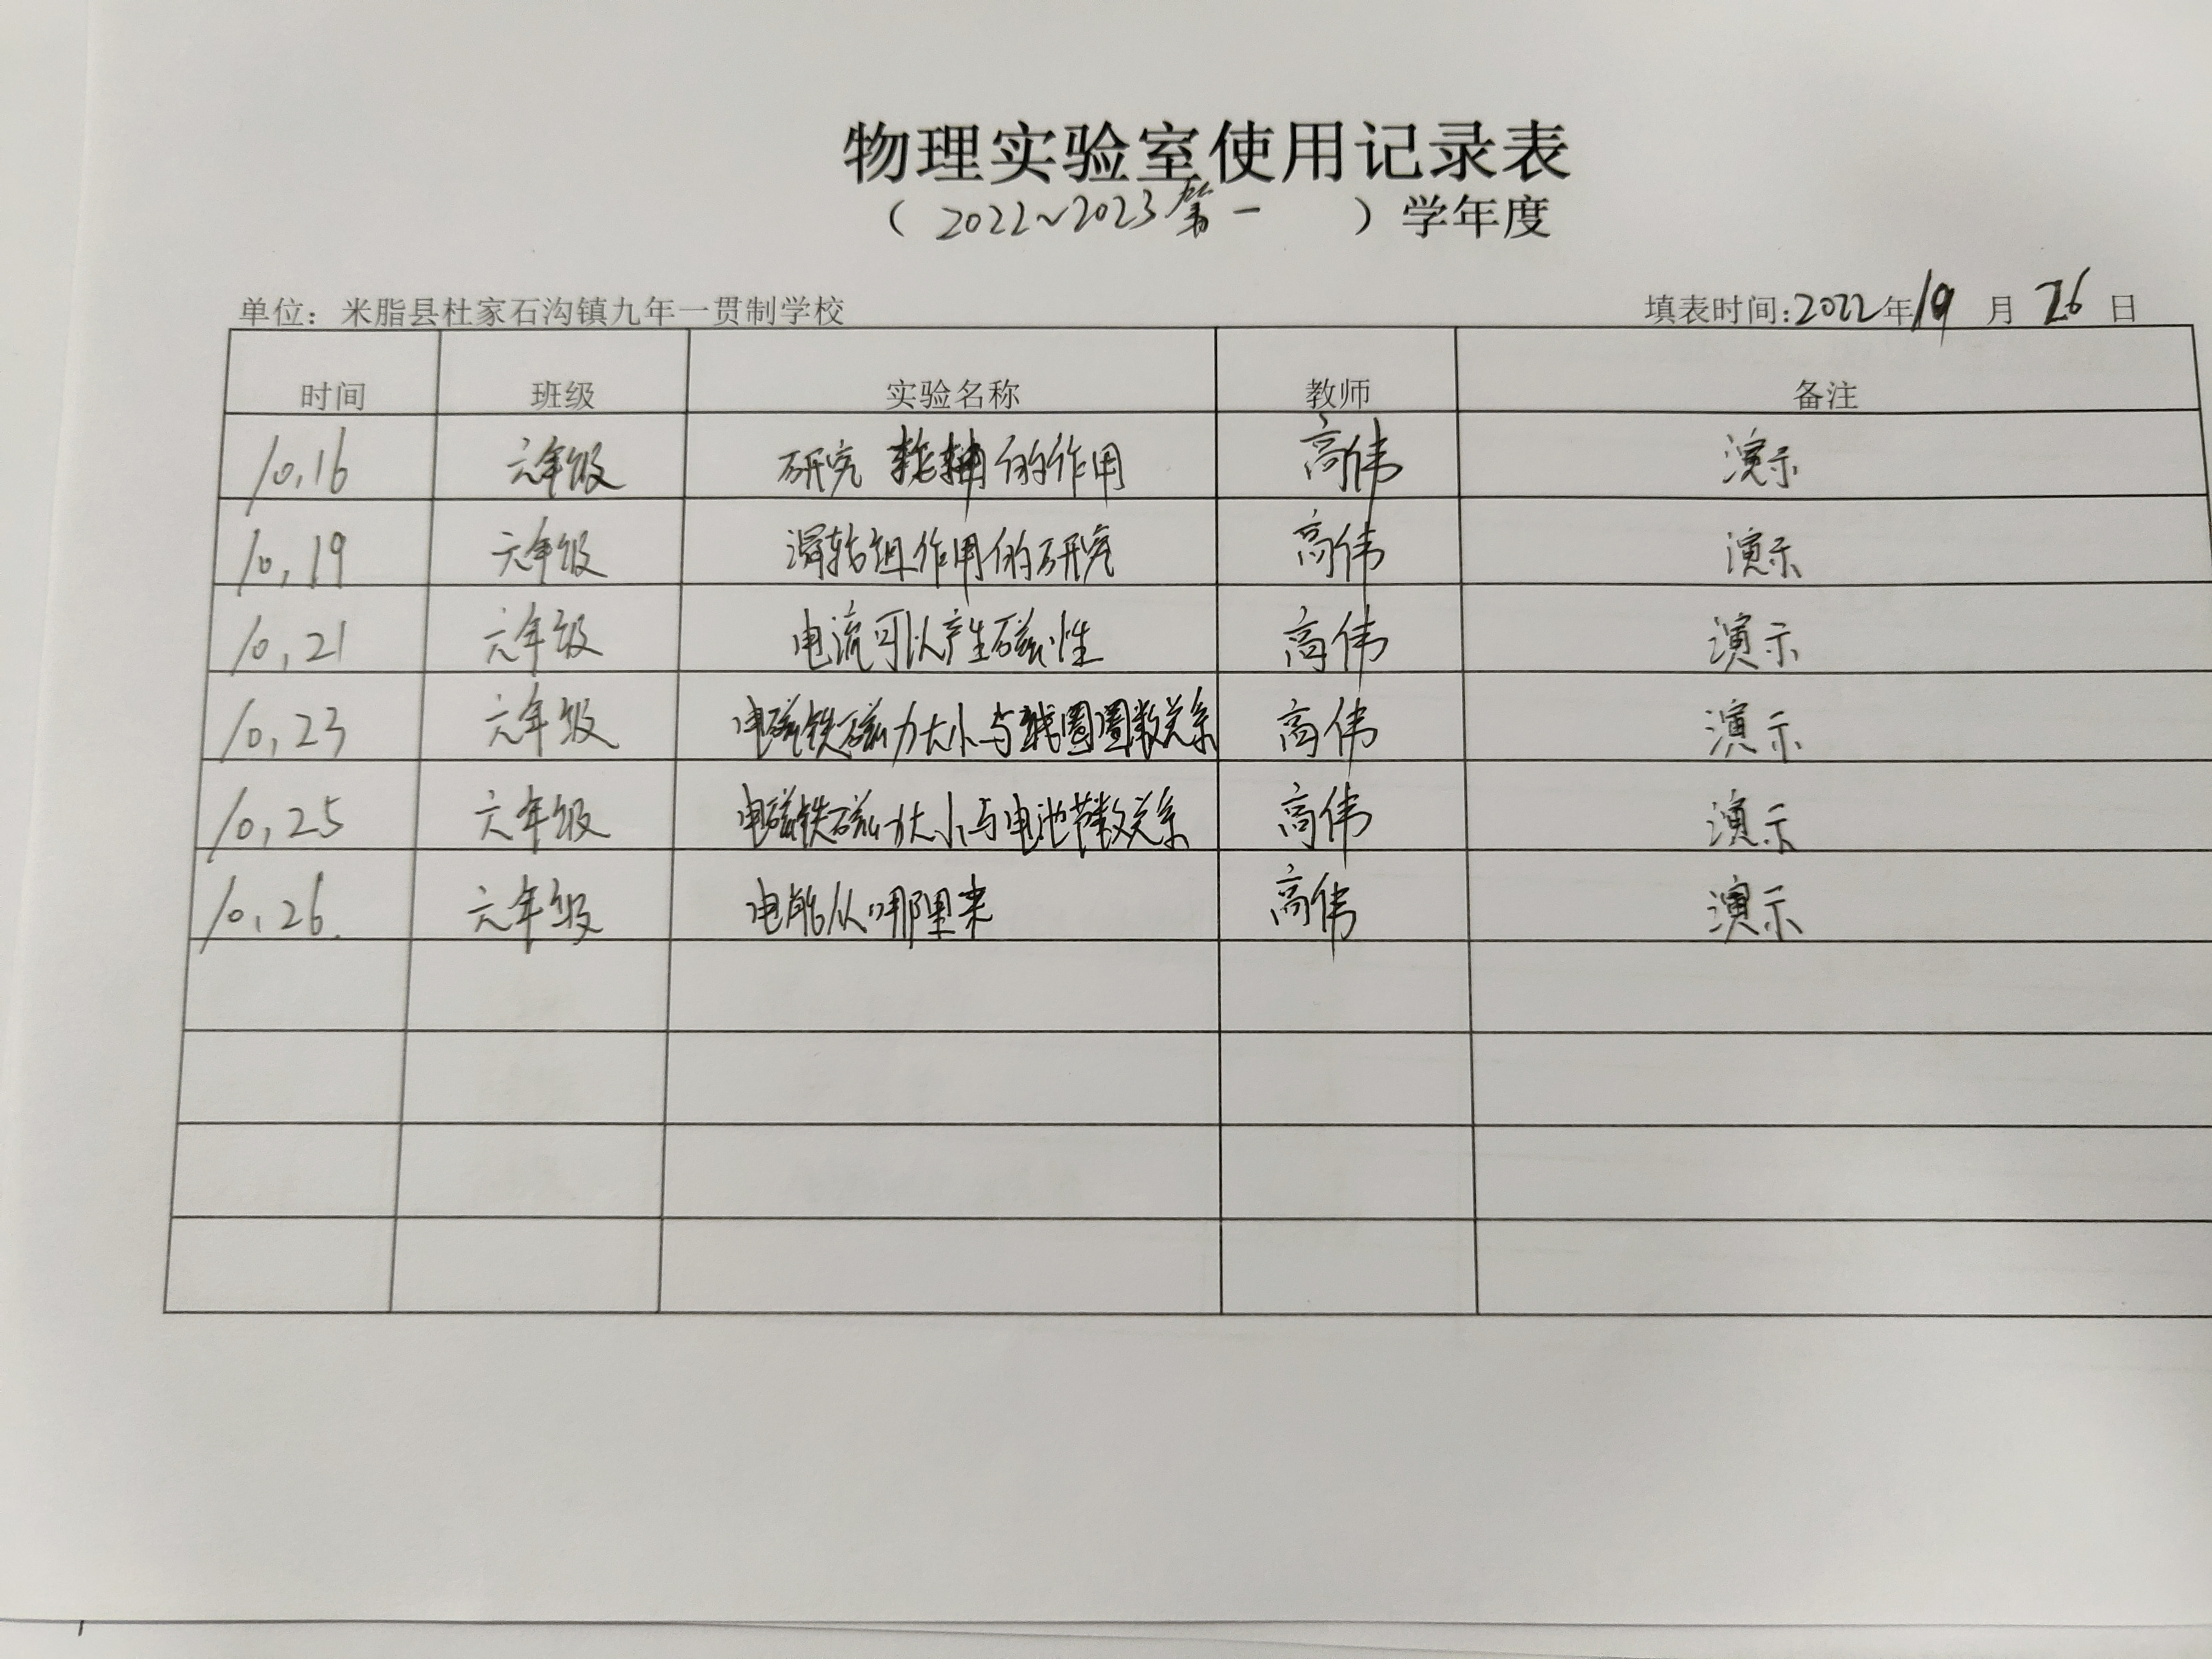 物理实验室使用记录表
（2022~2023第一 ）学年度
单位：米脂县杜家石沟镇九年一贯制学校 填表时间:2022年10月26日
时间 班级 实验名称 教师 备注
10,16 六年级 研究轮轴的作用 高伟 演示
10,19 六年级 滑轮组作用的研究 高伟 演示
10,21 六年级 电流可以产生磁性 高伟 演示
10,23 六年级 电磁铁磁力大小与线圈圈数关系 高伟 演示
10,25 六年级 电磁铁磁力大小与电池节数关系 高伟 演示
10,26. 六年级 电能从哪里来 高伟 演示